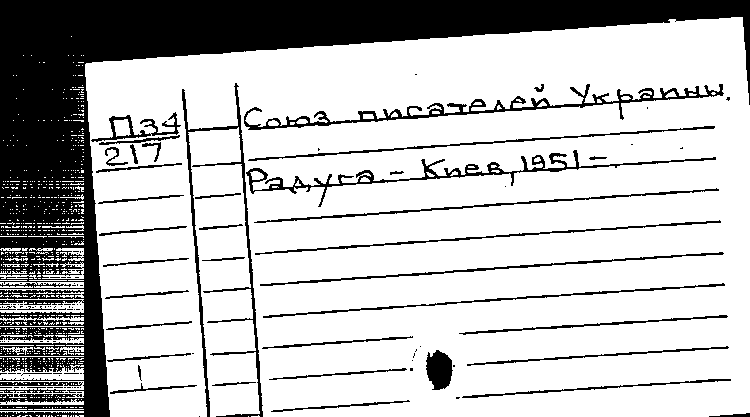 П34 Союз писателей Украины.
217
Радуга. - Киев, 1951 -.
1